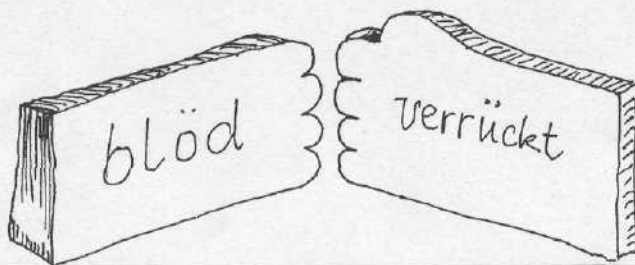 blöd
verrückt